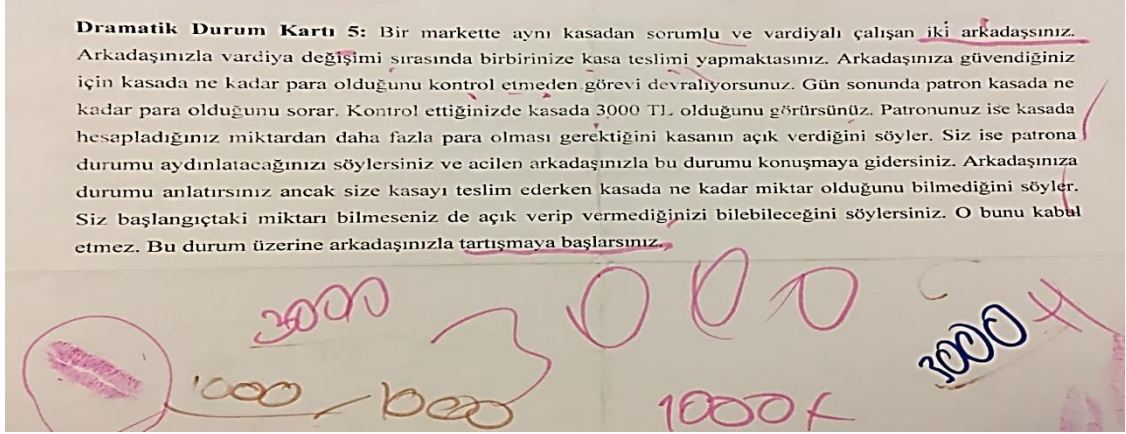 Dramatik Durum Kartı 5: Bir markette aynı kasadan sorumlu ve vardiyalı çalışan iki arkadaşsınız.
Arkadaşınızla vardiya değişimi sırasında birbirinize kasa teslimi yapmaktasınız. Arkadaşınıza güvendiğiniz
için kasada ne kadar para olduğunu kontrol etmeden görevi devralıyorsunuz. Gün sonunda patron kasada ne
kadar para olduğunu sorar. Kontrol ettiğinizde kasada 3000 TL olduğunu görürsünüz. Patronunuz ise kasada
hesapladığınız miktardan daha fazla para olması gerektiğini kasanın açık verdiğini söyler. Siz ise patrona
durumu aydınlatacağınızı söylersiniz ve acilen arkadaşınızla bu durumu konuşmaya gidersiniz. Arkadaşınıza
durumu anlatırsınız ancak size kasayı teslim ederken kasada ne kadar miktar olduğunu bilmediğini söyler.
Siz başlangıçtaki miktarı bilmeseniz de açık verip vermediğinizi bilebileceğini söylersiniz. O bunu kabul
etmez. Bu durum üzerine arkadaşınızla tartışmaya başlarsınız.
3000
000
3000
1000 1000
1000